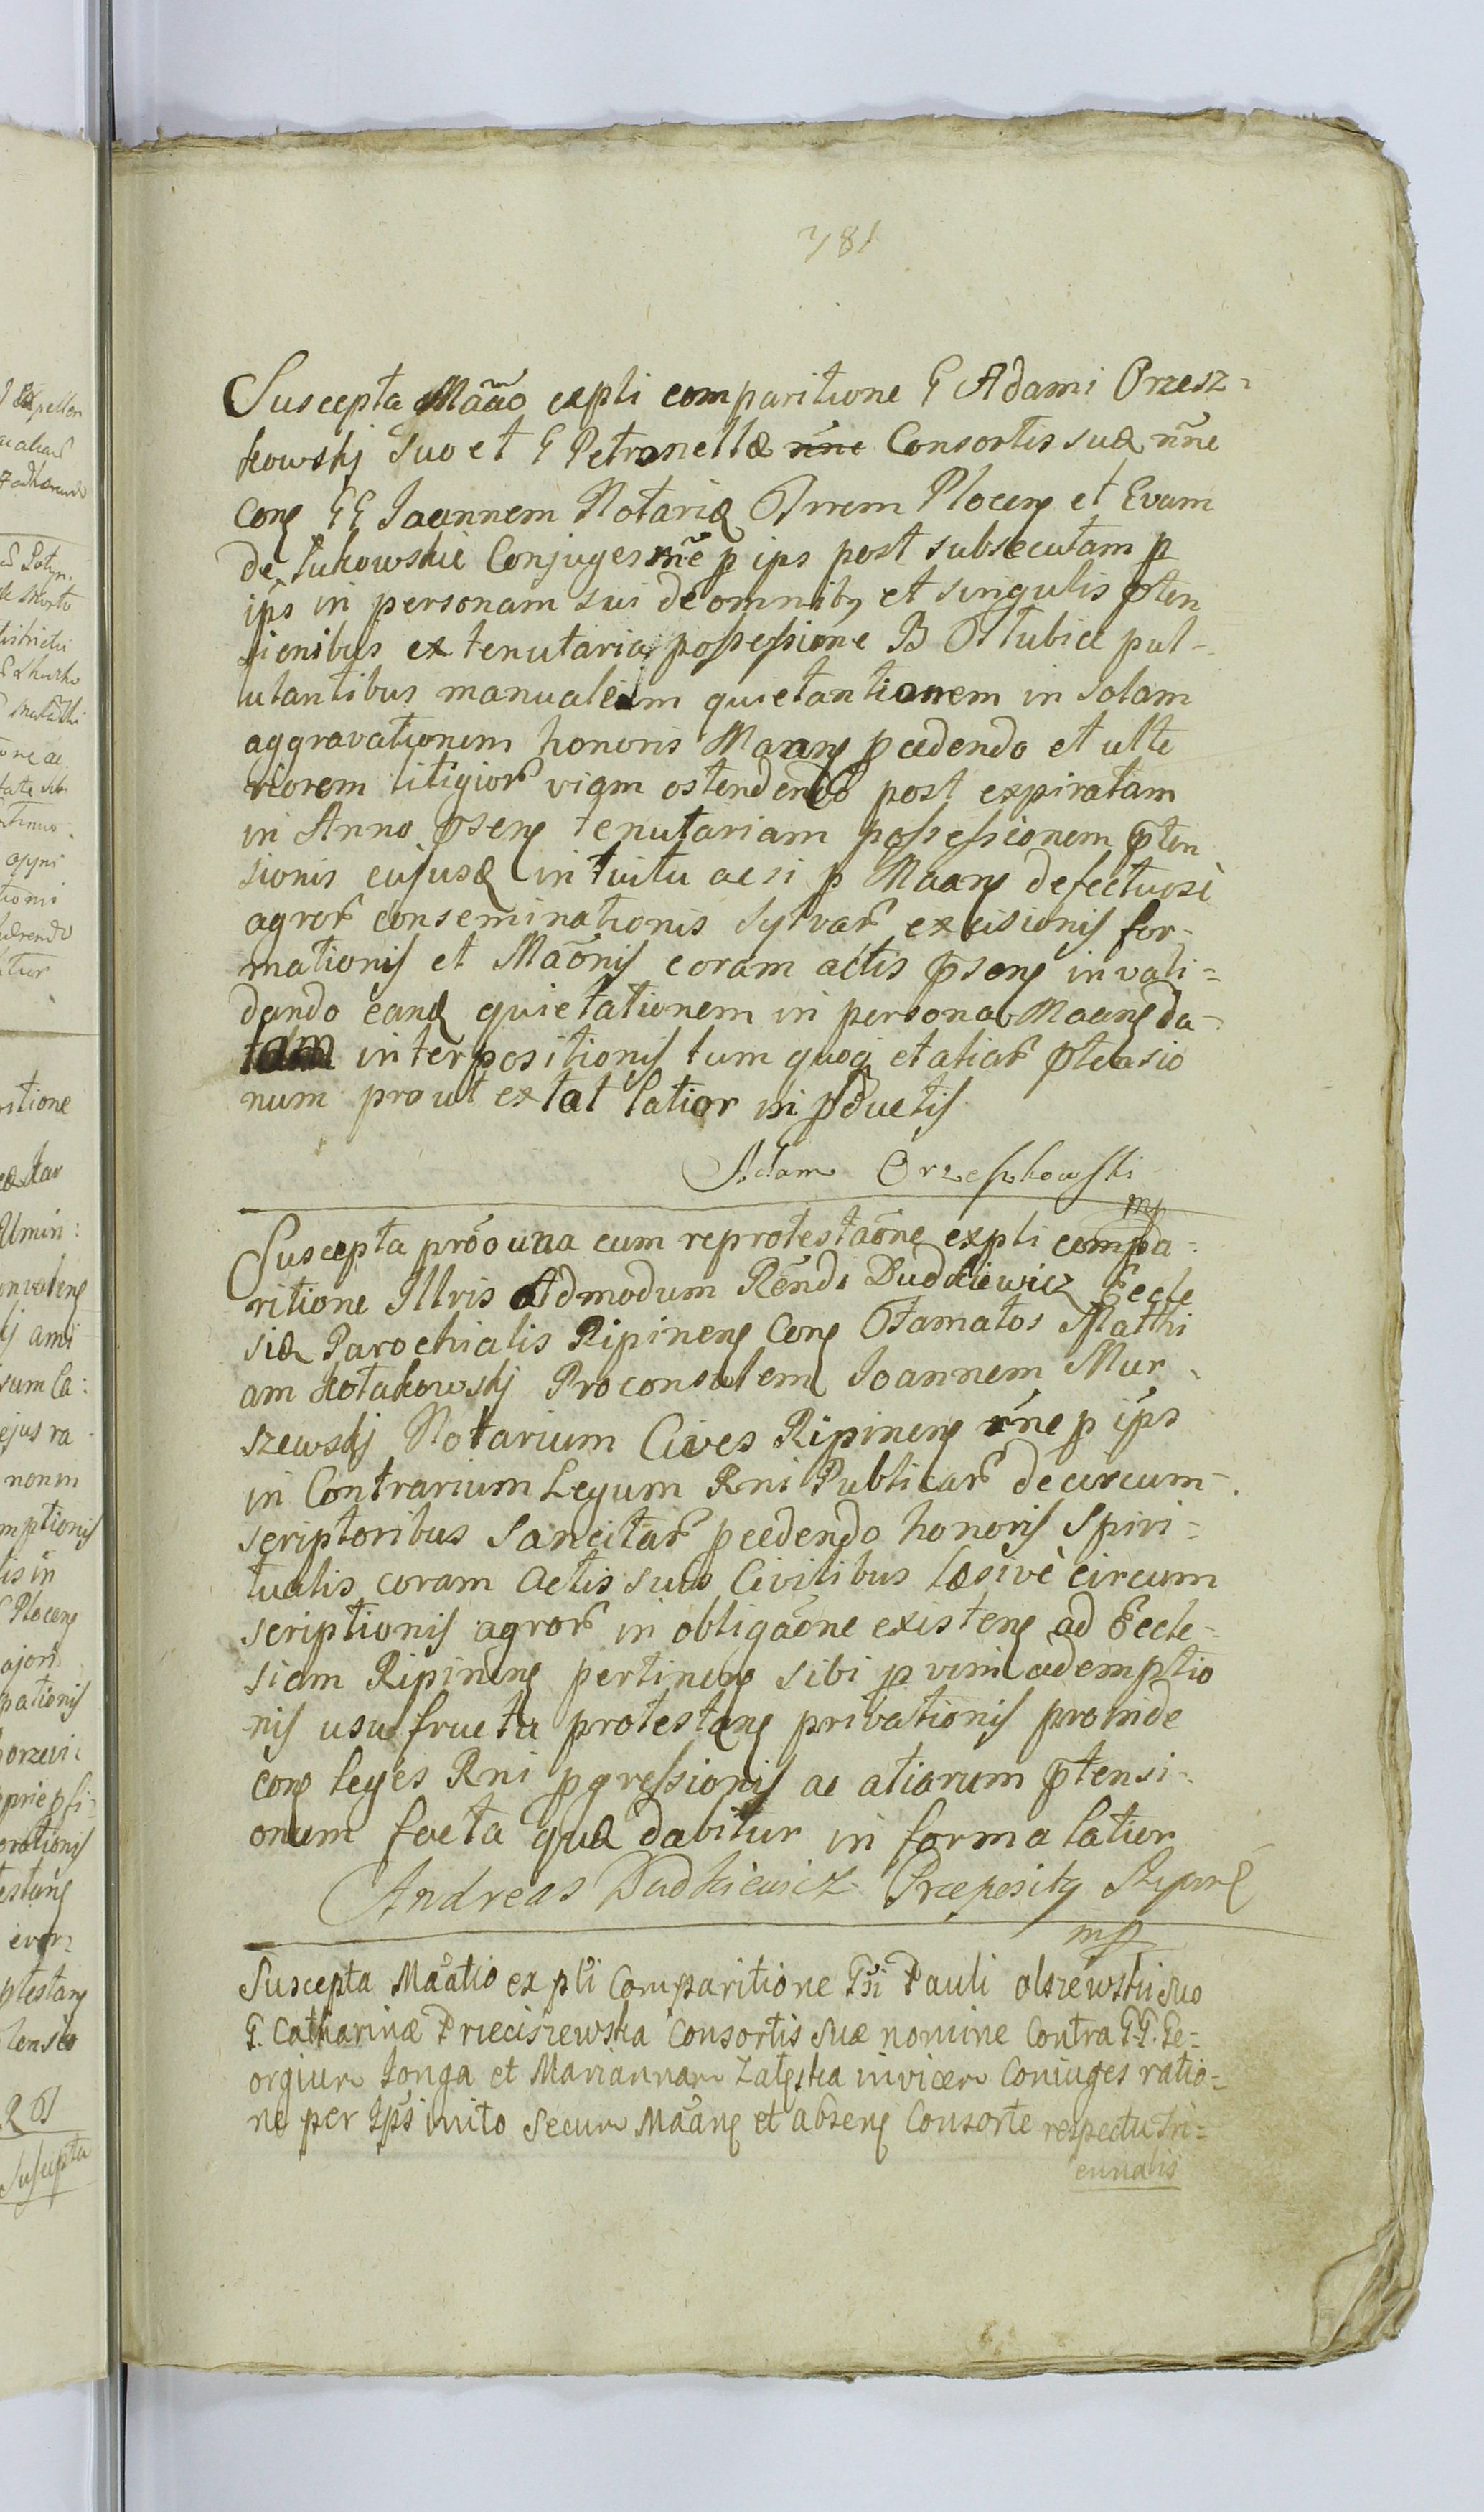 781
Suscepta Mãão expli comparitione G Adami Orzesz=
kowskj Suo et G Petronellæ nñe Consortis suæ nñe
Cong GG Joannem Notariæ Plocens et Evam
de Lukowskie Conjuges rñe p ips post subsecutam p
ips in personam sui de omnibq et singulis pten
sionibus ex tenutaria possessione B pul-
lulantibus manualem quietantionem in solam
aggravationem honoris Maang pcedendo et ulte
riorem litigior viam ostendendo post expiratam
in Anno psens tenutariam possessionem pten
sionis ejusdæ intuitu ac si p Maang defectuosè
agror conseminationis sylvar excisionis for-
mationis et Mãonis coram actis psens invali=
dando eand quietationem in persona Maang da-
tam interpositionis tum quoq et aliar ptensio
num prout extat latior in pductis
Adam Orzeszkowski
mp
Suscepta prõo una cum reprotestãone expli compa-
ritione Illris Admodum Rendi Dudkiewicz Eccle
siæ Parochialis Ripinens Cong Ffamatos Matthi
am Kotakowskj Proconsulem Joannem Mur-
szewskj Notarium Cives Ripinens rñe p ips
in Contrarium Legum Rni Publicar de circum-
scriptoribus Sancitar pcedendo honoris Spiri=
tualis coram Actis suis Civilibus læsivè circum
scriptionis agror in obligãone existens ad Eccle=
siam Ripinens pertinens sibi p vim ademptio
nis usufructu protestang privationis proinde
cong leges Rni pgressionis ac aliarum ptensi-
onum facta quæ dabitur in forma latior
Andreas Dudkiewicz Præpositq Rypin
mp
Suscepta Mãatio expli Comparitione Gsi Pauli Olszewski suo
G. Catharinæ Prieciszewska Consortis Suæ nomine Contra G.G. Ge=
orgium Longa et Mariannam Zaleska invicem Coniuges ratio=
ne per Ips inito Secum Mãang et absens Consorte respectu tri=
ennalis